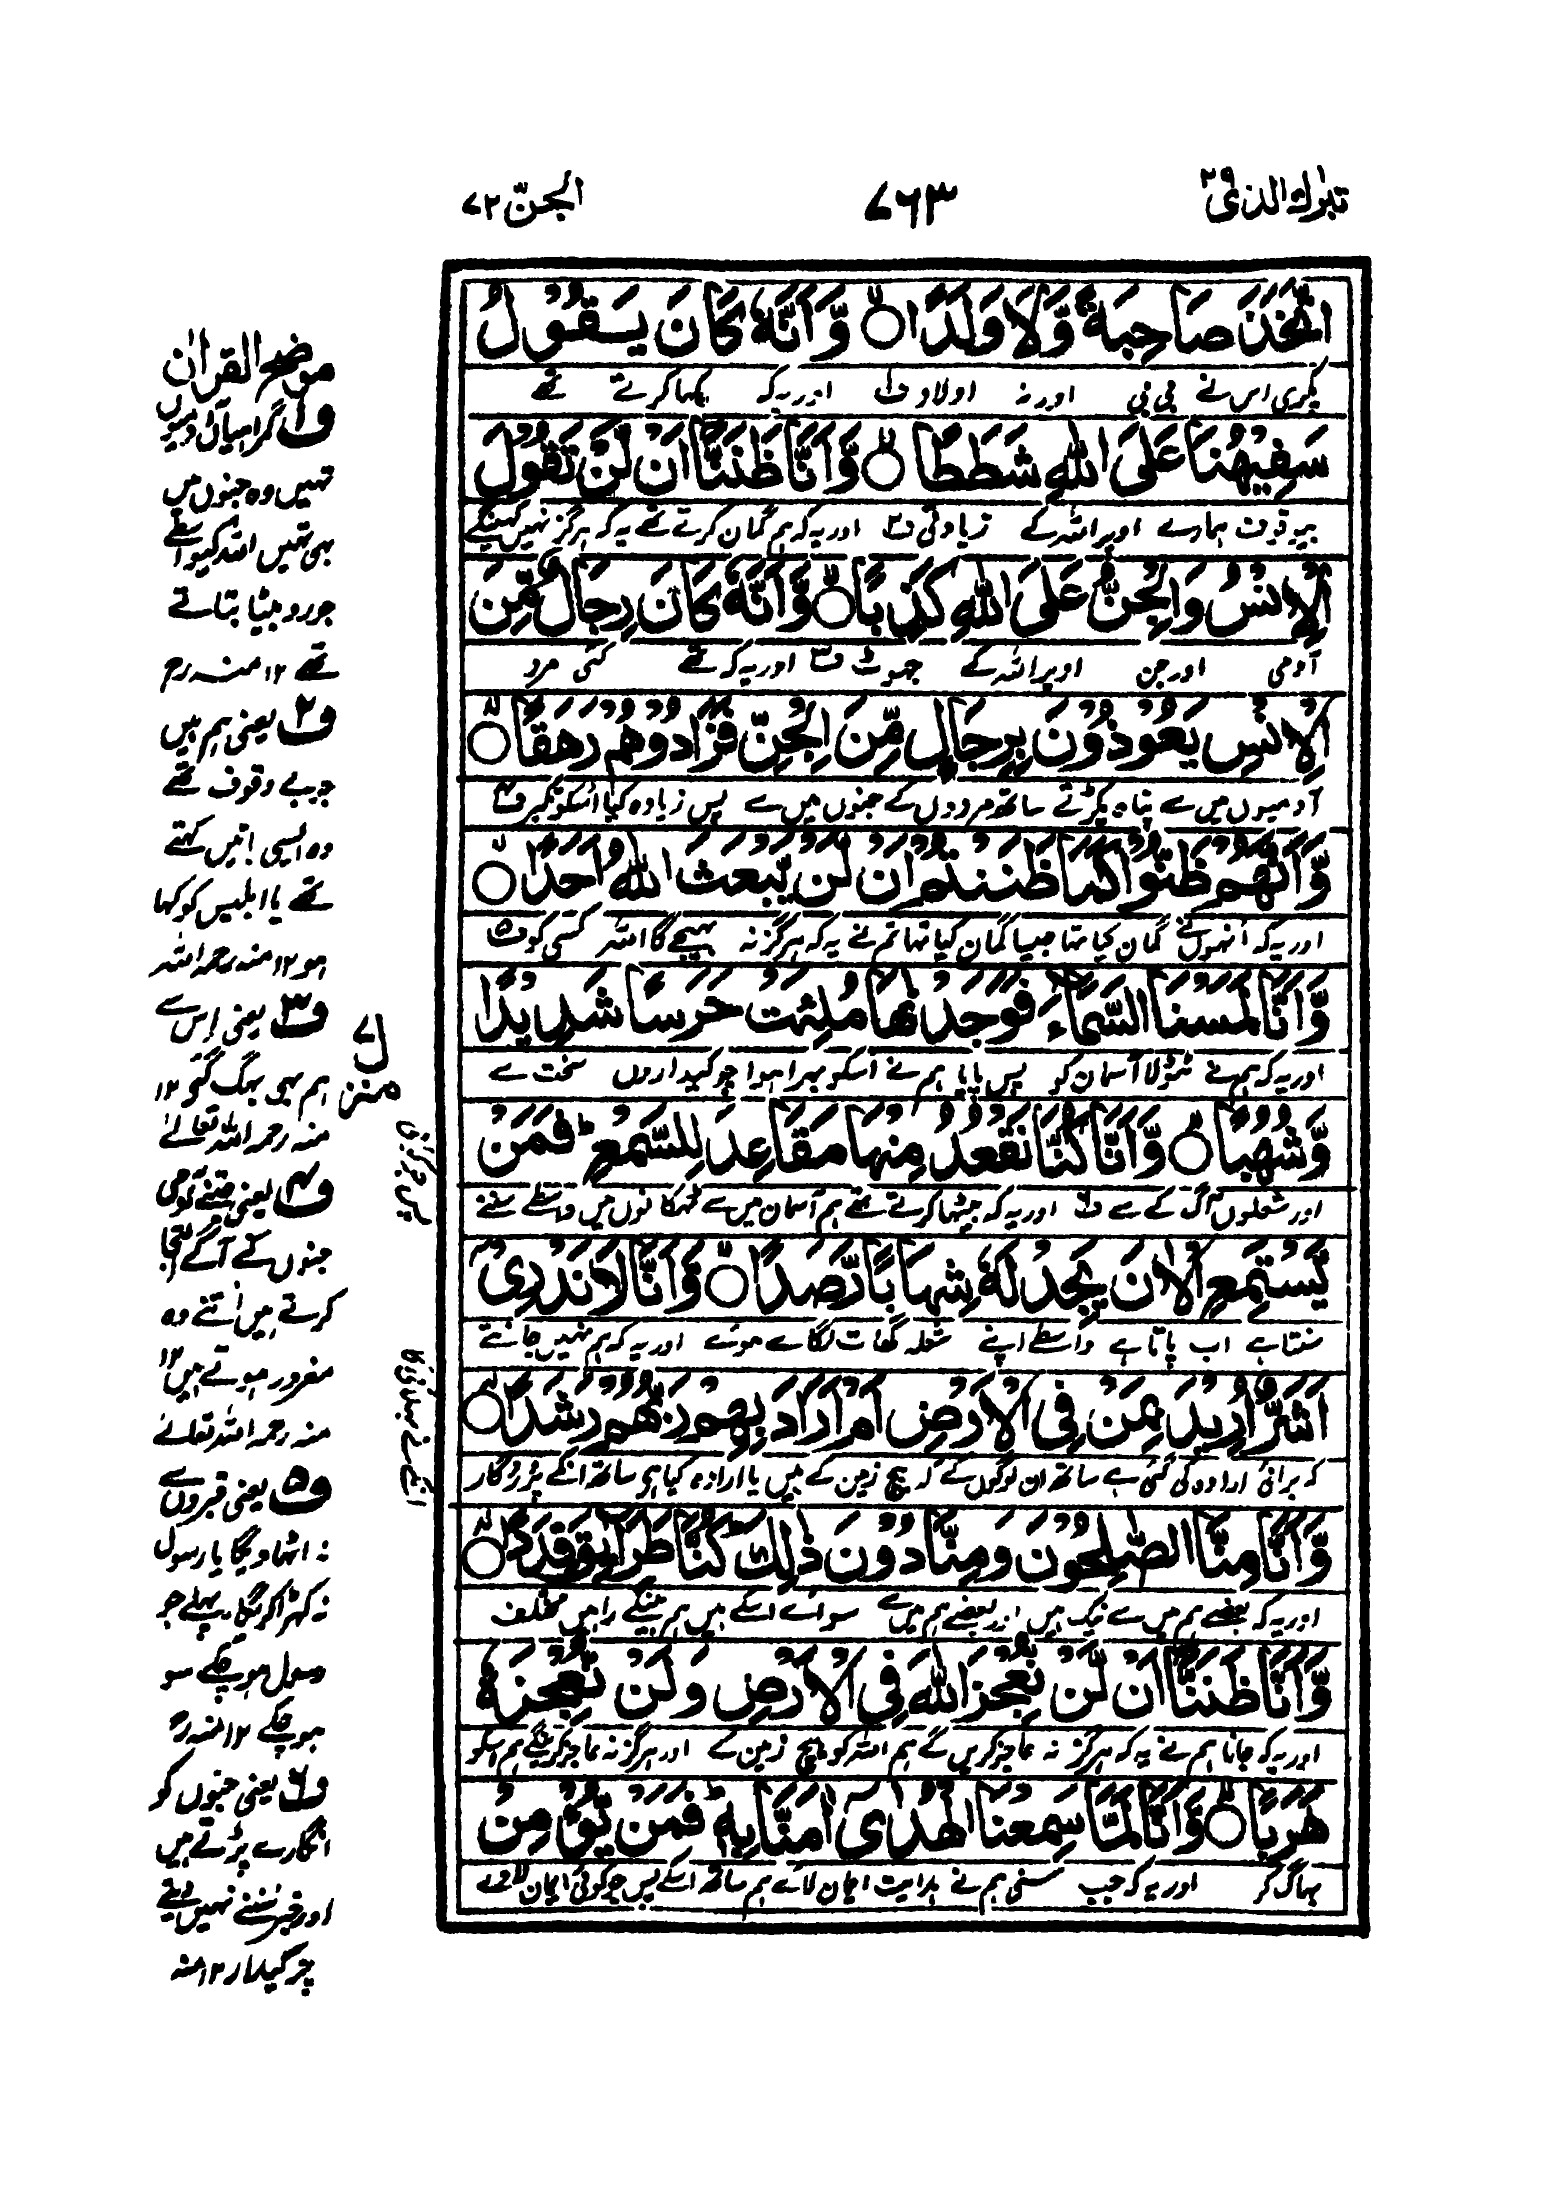 تبٰرك الذی ٢٩
٧٦٣
الجنّ ٧٢
اتَّخَذَ صَاحِبَةً وَّلَا وَلَدًا ۙ وَّاَنَّهٗ كَانَ يَقُوْلُ
پکڑی اس نے بی بی اور نہ اولاد ف۱ اور یہ کہ کہا کرتے تھے
سَفِيْهُنَا عَلَى اللّٰهِ شَطَطًا ۙ وَّاَنَّا ظَنَنَّاۤ اَنْ لَّنْ تَقُوْلَ
بیوقوف ہمارے اوپر اللہ کے زیادتی ف۲ اور یہ کہ ہم گمان کرتے تھے یہ کہ ہرگز نہیں کہینگے
الْاِنْسُ وَالْجِنُّ عَلَى اللّٰهِ كَذِبًا ۙ وَّاَنَّهٗ كَانَ رِجَالٌ مِّنَ
آدمی اور جن اوپر اللہ کے جھوٹ ف۳ اور یہ کہ تھے کئی مرد
الْاِنْسِ يَعُوْذُوْنَ بِرِجَالٍ مِّنَ الْجِنِّ فَزَادُوْهُمْ رَهَقًا ۙ
آدمیوں میں سے پناہ پکڑتے ساتھ مردوں کے جنوں میں سے پس زیادہ کیا انکو تکبر ف۴
وَّاَنَّهُمْ ظَنُّوْا كَمَا ظَنَنْتُمْ اَنْ لَّنْ يَّبْعَثَ اللّٰهُ اَحَدًا ۙ
اور یہ کہ اُنہوں نے گمان کیا تھا جیسا گمان کیا تھا تم نے یہ کہ ہرگز نہ بھیجے گا اللہ کسی کو ف۵
وَّاَنَّا لَمَسْنَا السَّمَآءَ فَوَجَدْنٰهَا مُلِئَتْ حَرَسًا شَدِيْدًا
اور یہ کہ ہم نے ٹٹولا آسمان کو پس پایا ہم نے اسکو بھرا ہوا چوکیداروں سخت سے
وَّشُهُبًا ۙ وَّاَنَّا كُنَّا نَقْعُدُ مِنْهَا مَقَاعِدَ لِلسَّمْعِ ؕ فَمَنْ
اور شعلوں آگ کے سے ف۶ اور یہ کہ بیٹھا کرتے تھے ہم آسمان میں سے ٹھکانوں میں واسطے سننے
يَّسْتَمِعِ الْاٰنَ يَجِدْ لَهٗ شِهَابًا رَّصَدًا ۙ وَّاَنَّا لَا نَدْرِيْۤ
سنتا ہے اب پاتا ہے واسطے اپنے شعلہ گھات لگائے ہوئے اور یہ کہ ہم نہیں جانتے
اَشَرٌّ اُرِيْدَ بِمَنْ فِى الْاَرْضِ اَمْ اَرَادَ بِهِمْ رَبُّهُمْ رَشَدًا ۙ
کہ برائی ارادہ کی گئی ہے ساتھ ان لوگوں کے کہ بیچ زمین کے ہیں یا ارادہ کیا ہے ساتھ انکے پروردگار
وَّاَنَّا مِنَّا الصّٰلِحُوْنَ وَمِنَّا دُوْنَ ذٰلِكَ ؕ كُنَّا طَرَآئِقَ قِدَدًا ۙ
اور یہ کہ بعضے ہم میں سے نیک ہیں اور بعضے ہم میں سے سوائے اسکے ہیں ہم ہینگے راہیں مختلف
وَّاَنَّا ظَنَنَّاۤ اَنْ لَّنْ نُّعْجِزَ اللّٰهَ فِى الْاَرْضِ وَلَنْ نُّعْجِزَهٗ
اور یہ کہ جانا ہم نے یہ کہ ہرگز نہ عاجز کریں گے ہم اللہ کو بیچ زمین کے اور ہرگز نہ عاجز کرینگے ہم اسکو
هَرَبًا ۙ وَّاَنَّا لَمَّا سَمِعْنَا الْهُدٰۤى اٰمَنَّا بِهٖ ؕ فَمَنْ يُّؤْمِنْ
بھاگ کر اور یہ کہ جب سنی ہم نے ہدایت ایمان لائے ہم ساتھ اسکے پس جو کوئی ایمان لاوے
موضح القرآن
ف۱ گمراہیاں آدمیوں
تہیں وہ جنوں میں
بھی تہیں اللہ کیواسطے
جورو بیٹا بتاتے
تھے ١٢ منہ رح
ف۲ یعنی ہم میں
جو بے وقوف تھے
وہ ایسی باتیں کہتے
تھے یا ابلیس کو کہا
ہو ١٢ منہ رحمہ اللہ
ف۳ یعنی اِس سے
ہم بھی بہک گئے ١٢
منہ رحمہ اللہ تعالےٰ
ف۴ یعنی جتنے آدمی
جنوں کے آگے التجا
کرتے ہیں اتنے وہ
مغرور ہوتے ہیں ١٢
منہ رحمہ اللہ تعالےٰ
ف۵ یعنی قبروں سے
نہ اٹھاویگا یا رسول
نہ کھڑا کریگا پہلے جو
رسول ہو چکے سو
ہو چکے ١٢ منہ رح
ف۶ یعنی جنوں کو
انگارے پڑتے ہیں
اور خبر سننے نہیں دیتے
چوکیدار ١٢ منہ
منزل ٧
پس جو کوئی
انکے نے بھلائی کا